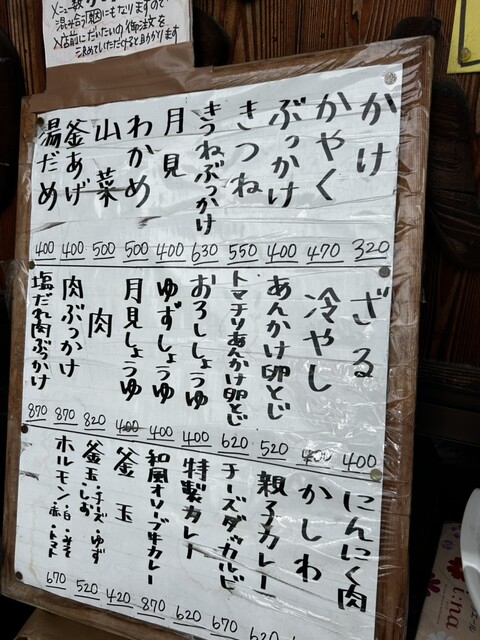 混み合う原因にもなりますので
入店前にだいたいの御注文を
決めていただけると助かります
かけ 320
かやく 470
ぶっかけ 400
きつね 550
きつねぶっかけ 630
月見 400
わかめ 500
山菜 500
釜あげ 400
湯だめ 400
ざる 400
冷やし 400
あんかけ卵とじ 520
トマチリあんかけ卵とじ 620
おろししょうゆ 400
ゆずしょうゆ 400
月見しょうゆ 400
肉 820
肉ぶっかけ 870
塩だれ肉ぶっかけ 870
にんにく肉
かしわ
親子カレー 620
チーズダッカルビ 670
特製カレー 620
和風オリーブ牛カレー 870
釜玉 420
釜玉・チーズ・ゆず・しお 520
ホルモン・白・・赤・トマト 670